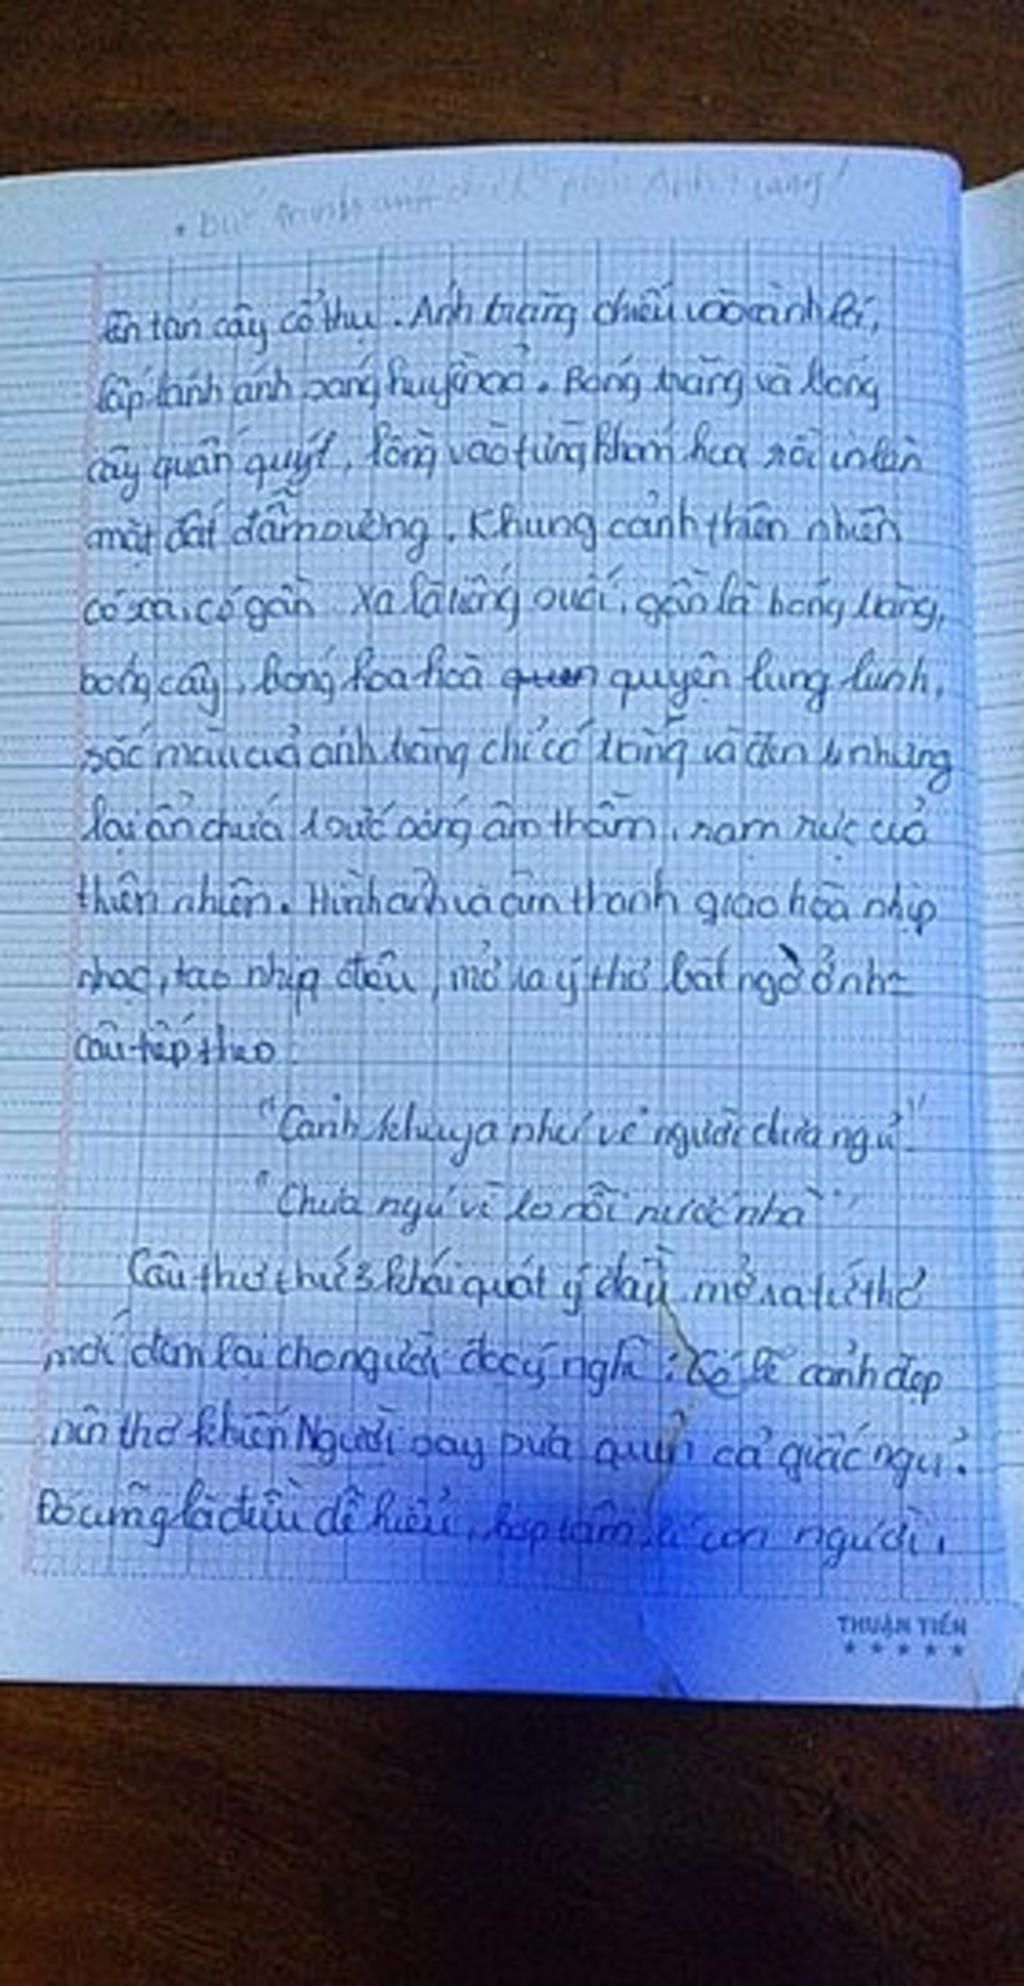 lên tán cây cổ thụ. Ánh trăng chiếu vào cành lá,
lấp lánh ánh sáng huyền ảo. Bóng trăng và bóng
cây quấn quýt, lồng vào từng khóm hoa rồi in lên
mặt đất đẫm sương. Khung cảnh thiên nhiên
có xa, có gần. Xa là tiếng suối, gần là bóng trăng,
bóng cây, bóng hoa hoà quyện lung linh,
sắc màu của ánh trăng chỉ có trắng và đen nhưng
lại ẩn chứa sức sống âm thầm, rạo rực của
thiên nhiên. Hình ảnh và âm thanh giao hoà nhịp
nhạc, tạo nhịp điệu, mở ra ý thơ bất ngờ ở
câu tiếp theo.
"Cảnh khuya như vẽ người chưa ngủ"
"Chưa ngủ vì lo nỗi nước nhà"
Câu thơ thứ 3 khái quát ý đầu, mở ra tứ thơ
mới đem lại cho người đọc ý nghĩ: Có lẽ cảnh đẹp
nên thơ khiến Người say sưa quên cả giấc ngủ.
Đó cũng là điều dễ hiểu, hợp tâm lí con người,
THUẬN TIẾN